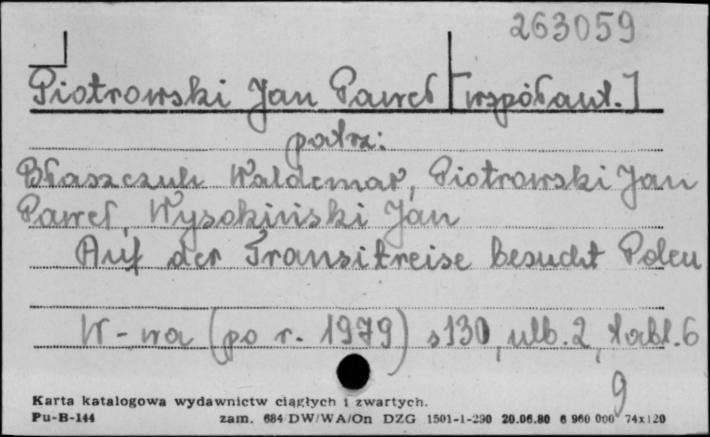 263059
Piotrowski Jan Paweł [współaut.]
patrz:
Błaszczyk Waldemar, Piotrowski Jan
Paweł, Wysokiński Jan
Auf der Transitreise besucht Polen
W-wa (po r. 1979) s 130, nlb. 2, tabl. 6
9
Karta katalogowa wydawnictw ciągłych i zwartych.
Pu-B-144 zam. 684/DW/WA/On DZG 1501-1-290 20.06.80 6 960 000 74x120